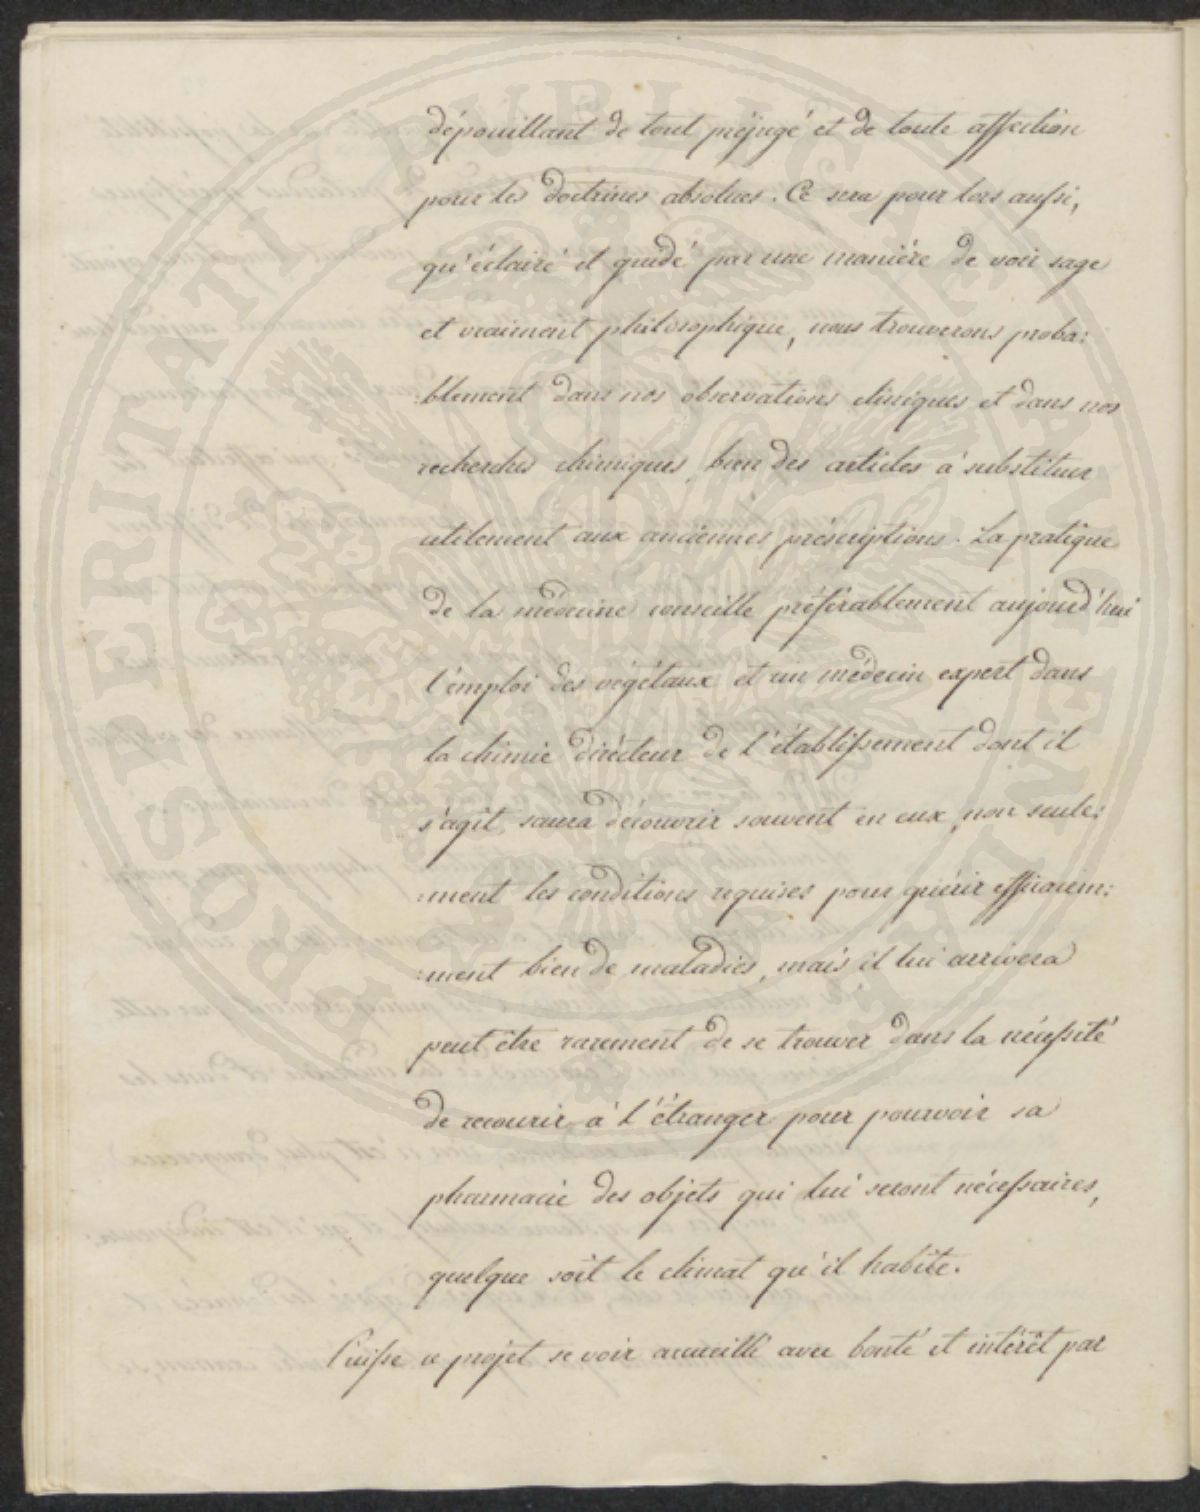 dépouillant de tout préjugé et de toute affection
pour les doctrines absolues. Ce sera pour lors aussi,
qu'éclairé et guidé par une manière de voir sage
et vraiment philosophique, nous trouverons proba:
:blement dans nos observations cliniques et dans nos
recherches chimiques, bien des articles à substituer
utilement aux anciennes préscriptions. La pratique
de la médecine conseille préférablement aujourd'hui
l'emploi des végétaux et un médecin expert dans
la chimie directeur de l'établissement dont il
s'agit, saura découvrir souvent en eux, non seule:
:ment les conditions requises pour guérir efficacem:
:ment bien de maladies, mais il lui arrivera
peut être rarement de se trouver dans la nécessité
de recourir à l'étranger pour pourvoir sa
pharmacie des objets qui lui seront nécessaires,
quelque soit le climat qu'il habite.
Puisse ce projet se voir accueilli avec bonté et intérêt par
PROSPERITATI PUBLICAE AUGENDAE